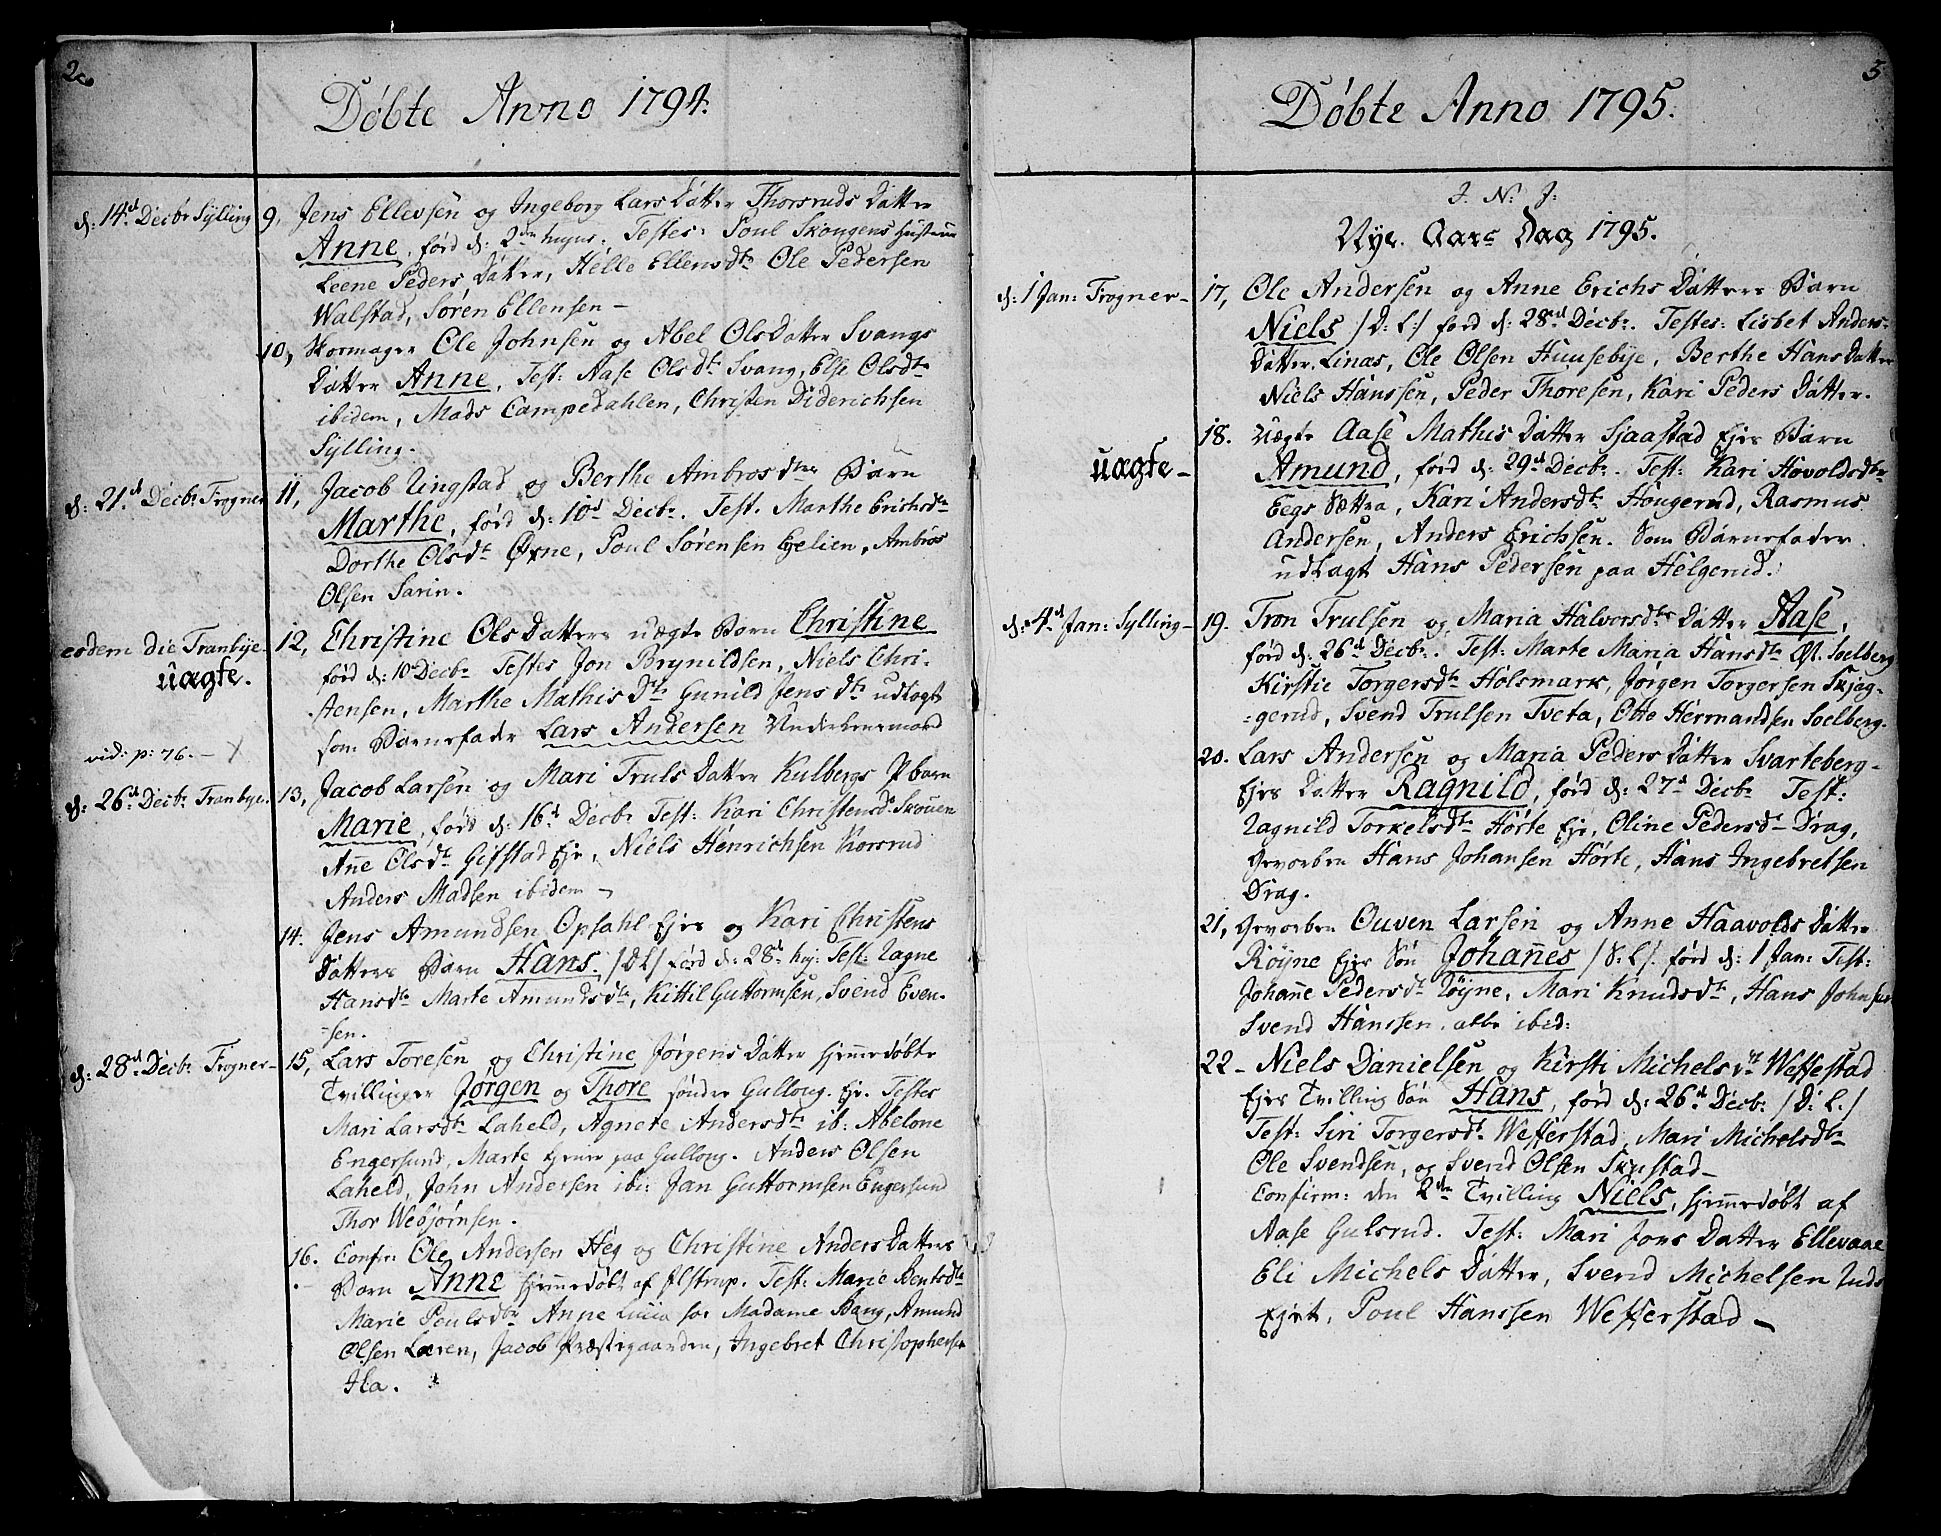 2
Döbte Anno 1794.
d: 14d Decbr Sylling 9, Jens Ellevsen og Ingeborg Lars Datter Thorsruds Datter
Anne,förd d: 2den hujus. Testes: Poul Skougens Hustrue
Leene Peders Datter, Helle Ellensdtr Ole Pedersen
Walstad, Sören Ellensen –
10, Skomager Ole Johnsen og Abel Ols Datter Svangs
Datter Anne, Test: Aase Olsdtr Svang, Else Olsdtr
ibidem, Mads Campedahlen, Christen Diderichsen
Sylling.
d: 21d Decbr Frogner 11, Jacob Ungstad og Berthe Ambrosdtrs Barn
Marthe, förd d: 10d Decbr. Test. Marthe Erichsdtr
Dorthe Olsdtr Öxne, Poul Sörensen Eyelien, Ambros
Olsen Sarin.
eodem die Tranbye 12, Christine Ols Datters uægte Barn Christine
uægte.
förd d: 10 Decbr Testes Jon Brynildsen, Niels Chri-
stensen, Marthe Mathis Dtr Gunild Jens dtr udlagt
som Barnefader Lars Andersen Underlensmand
vid: p: 76. – X
d: 26d Decbr Tranbye. 13, Jacob Larsen og Mari Truls Datter Kulbergs P barn
Marie, förd d: 16d Decbr Test: Kari Christensdr Skouen
Ane Olsdtr Gifstad Eje, Niels Henrichsen Korsrud
Anders Madsen ibidem –
14. Jens Amundsen Opsahl Ejes og Kari Christens
Datters Barn Hans. /DL/ förd d: 28d huj: Test: Ragne
Hansdtr Marte Amundsdtr, Kittil Guttormsen, Svend Even-
-sen.
d: 28d Decbr Frogner – 15, Lars Toresen og Christine Jörgens Datter hjemmedöbte
Tvillinger Jörgen og Thore söndre Gulloug. Eje. Testes
Mari Larsdtr Laheld, Agnete Andersdtr ib: Abelone
Engersund, Marte tjener paa Gulloug. Anders Olsen
Laheld, John Andersen ibi: Jan Guttormsen Engersund
Thor Webjörnsen.
16. Confir: Ole Andersen Heg og Christine Anders Datters
Barn Anne hjemmedöbt af Ilstrup. Test: Marie Bentsdtr
Marie Poulsdtr Anne Lucia hos Madame Bang, Amund
Olsen Leeren, Jacob Præstegaarden, Ingebret Christophersen
Ila.
3
Döbte Anno 1795.
J. N. J:
Nye Aars Dag 1795.
d: 1 Jan: Frogner – 17, Ole Andersen og Anne Erichs Datters Barn
Niels /D: L:/ förd d: 28d Decbr. Testes: Lisbet Anders-
Datter Linas, Ole Olsen Huusebye, Berthe Hans Datter
Niels Hanssen, Peder Thoresen, Kari Peders Datter.
18. Uægte Aase Mathis Datter Sjaastad Ejes Barn
uægte –
Amund, förd d: 29d Decbr. Test: Kari Hovoldsdtr
Eegs Sættra, Kari Andersdtr Hougerud, Rasmus
Andersen, Anders Erichsen. Som Barnefader
udlagt Hans Pedersen paa Helgerud.
d: 4d Jan: Sylling – 19. Tron Trulsen og Maria Halvorsdtrs Datter Aase,
förd d: 26d Decbr. Test: Marte Maria Hansdtr Öst. Soelberg
Kirstie Torgersdtr Holsmark, Jörgen Torgersen Skjeg-
-gerud, Svend Trulsen Tveta, Otto Hermandsen Soelberg.
20. Lars Andersen og Maria Peders Datter Svarteberg-
Ejes Datter Ragnild, förd d: 27d Decbr Test:
Ragnild Torkelsdtr Hörte Eje, Oline Pedersdtr Drag,
Gevorben Hans Johansen Hörte, Hans Ingebretsen
Drag.
21, Gevorben Ouven Larsen og Anne Haavolds Datter
Röyne Ejes Sön Johannes /D: L/. förd d: 1 Jan: Test:
Johanne Pedersdtr Röyne, Mari Knudsdtr, Hans Johnsen
Svend Hanssen. alle ibid:
22 – Niels Danielsen og Kirsti Michelsdtr Weffestad
Ejes Tvilling Sön Hans, förd d: 26d Decbr /D: L./
Test: Siri Torgersdtr Wefferstad, Mari Michelsdtr
Ole Svendsen, og Svend Olsen Skustad –
Confirm: den 2den Tvilling Niels, hjemmedöbt af
Aase Gulsrud. Test: Mari Jons Datter Ellevaae
Eli Michels Datter, Svend Michelsen Ruds
Ejet, Poul Hanssen Wefferstad –